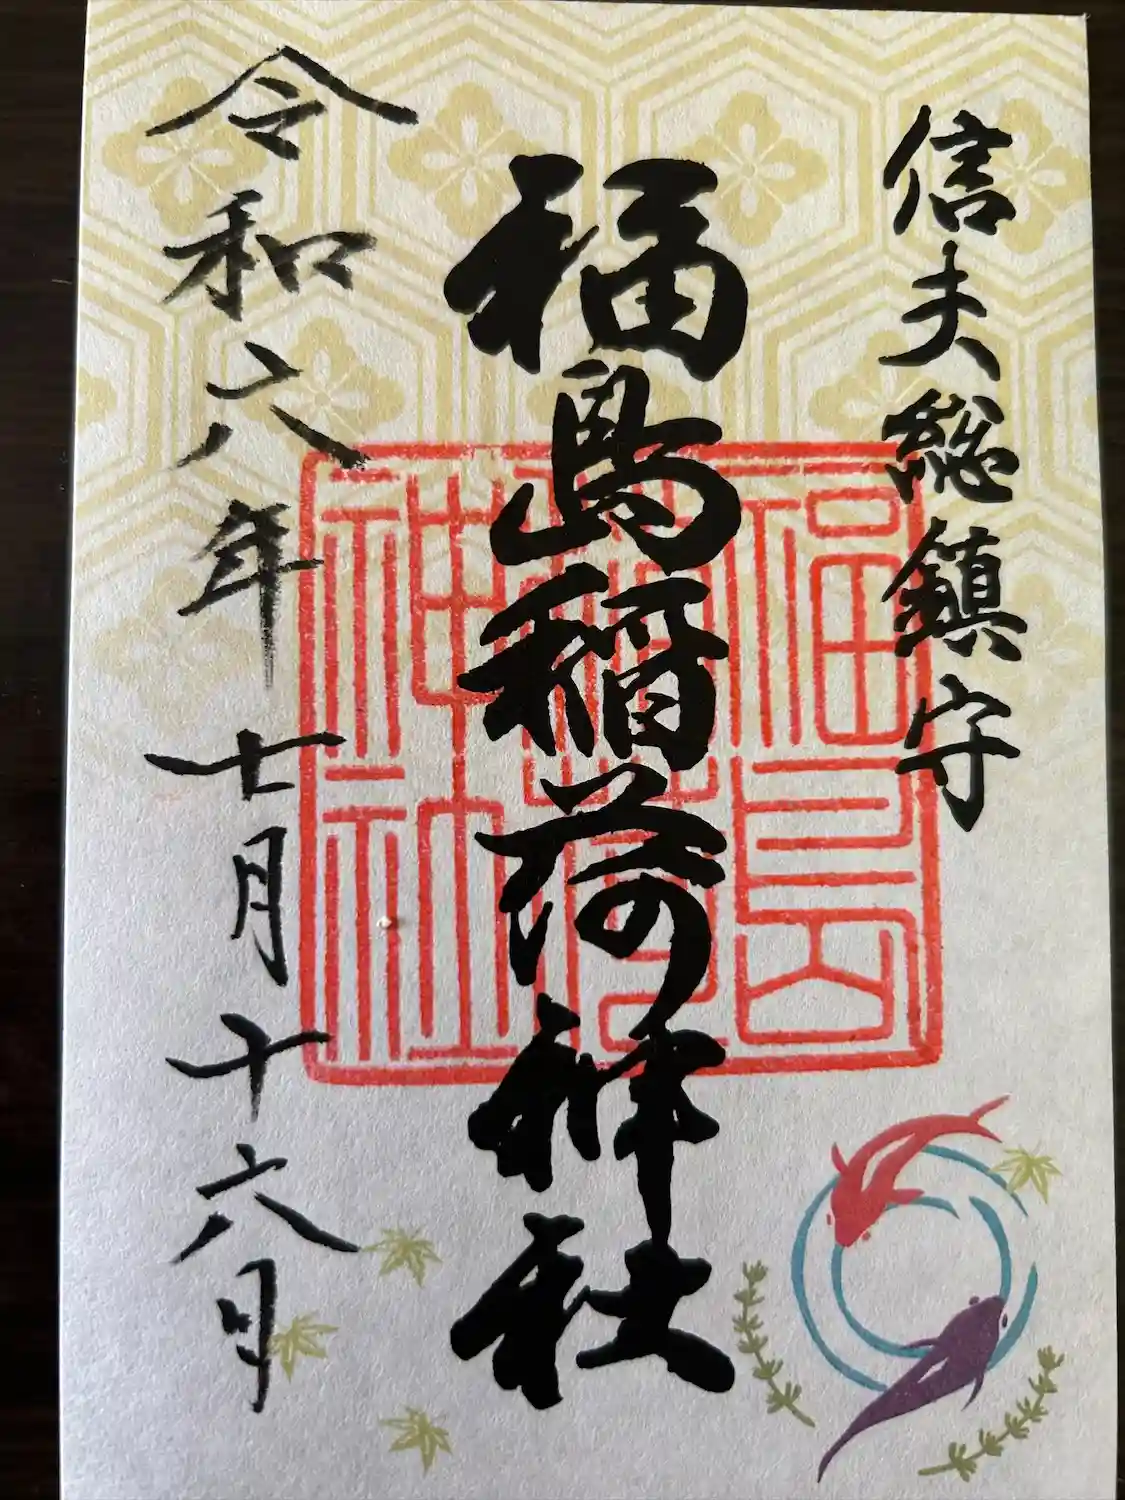 信夫総鎮守
福島稲荷神社
令和六年七月十六日
福島
稲荷
神社